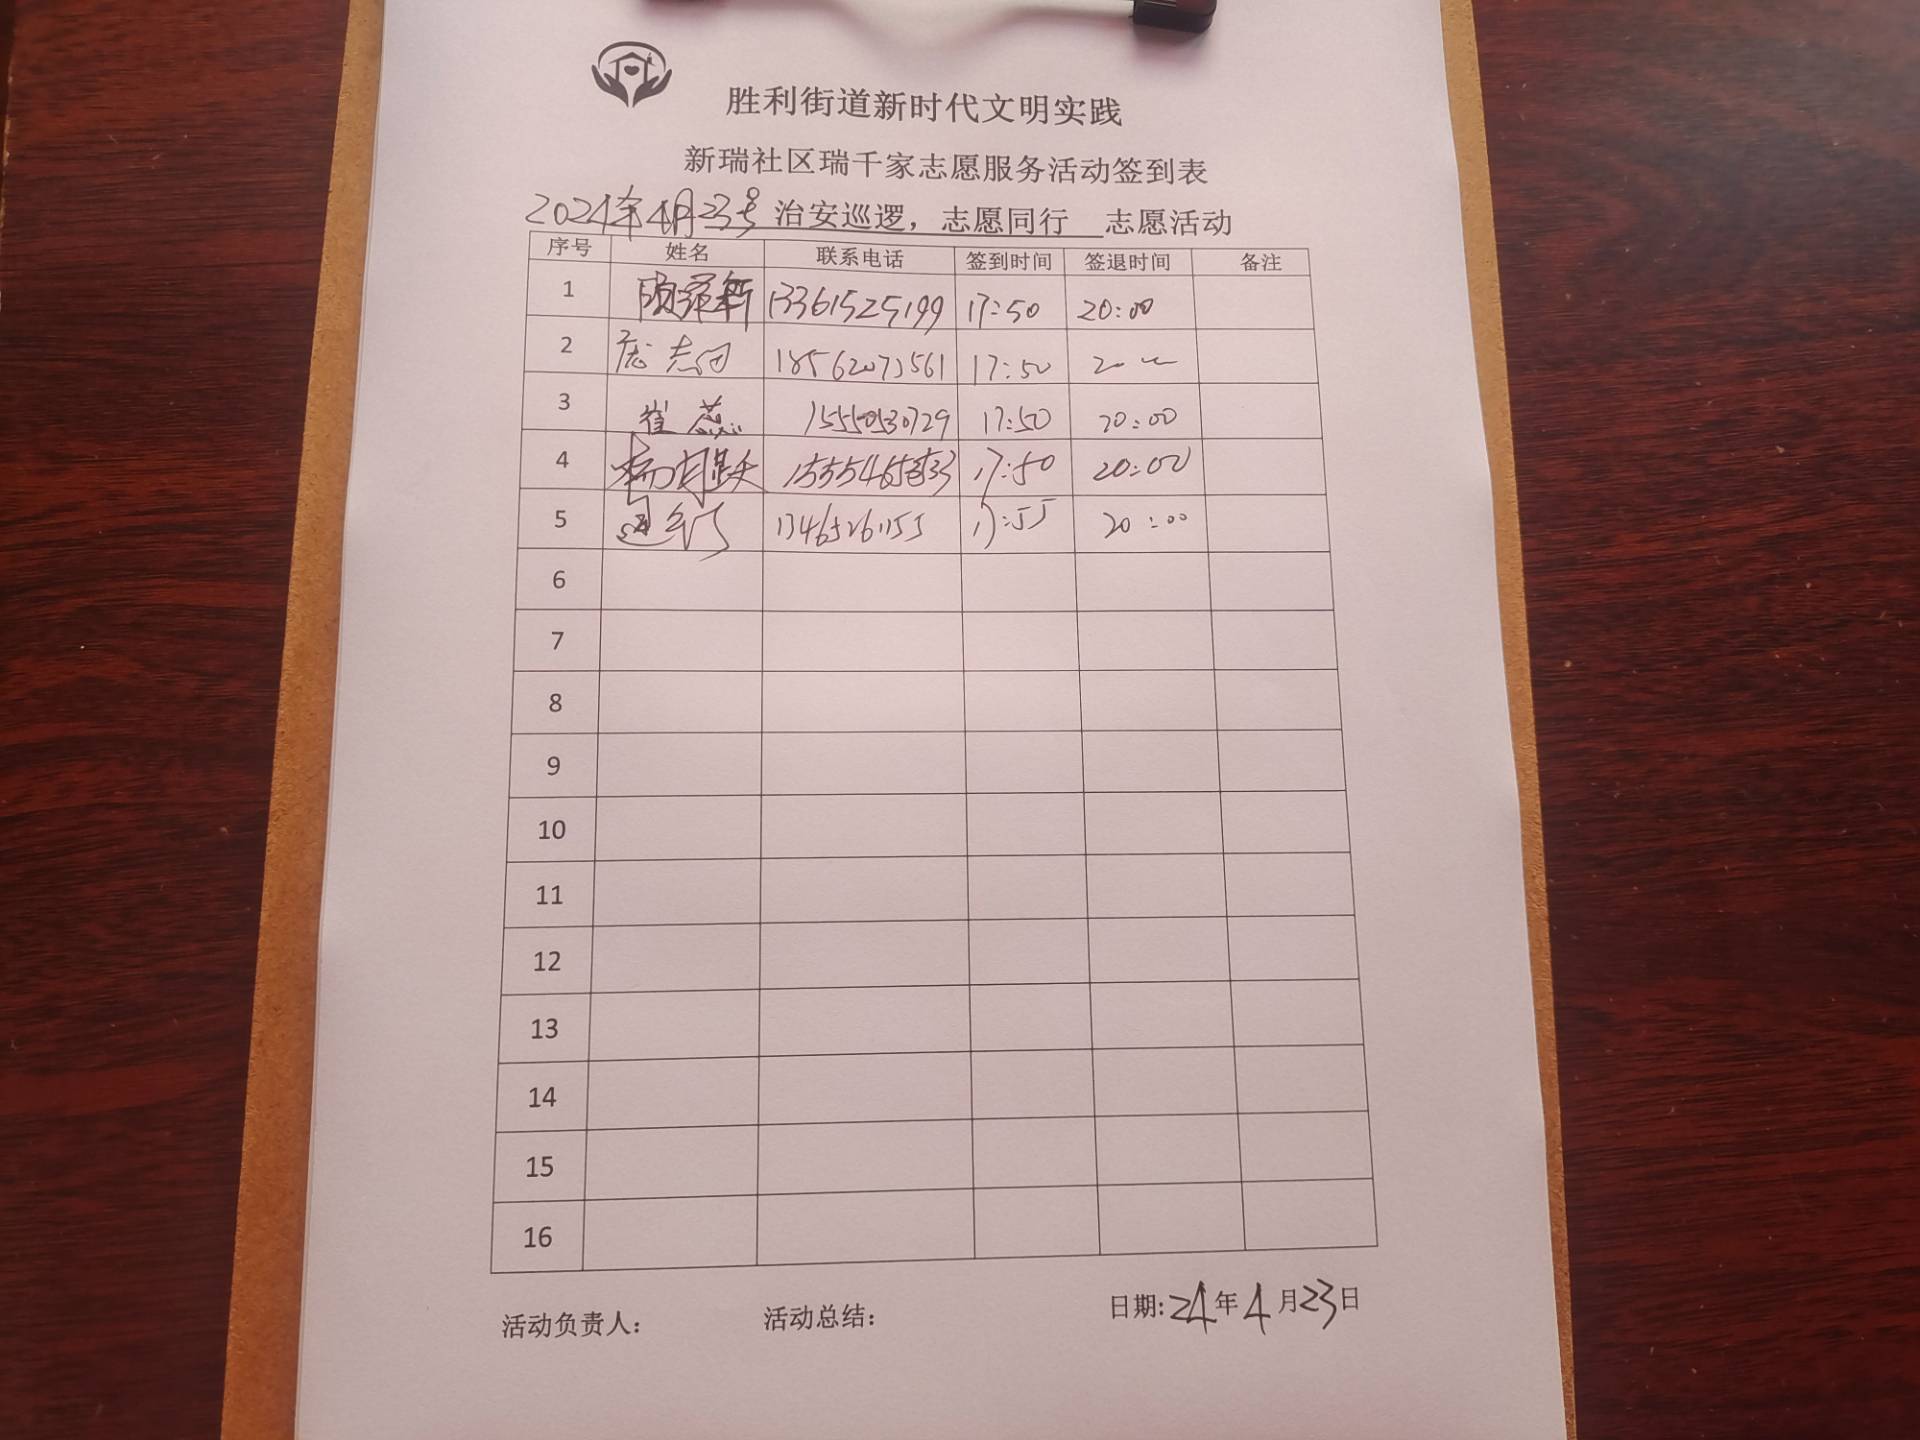 胜利街道新时代文明实践
新瑞社区瑞千家志愿服务活动签到表
2024年4月23号 治安巡逻，志愿同行 志愿活动
序号 姓名 联系电话 签到时间 签退时间 备注
1 13361525199 17:50 20:00
2 志 18562073561 17:50 20
3 崔蕊 15550530729 17:50 20:00
4 杨 17:50 20:00
5 13465261155 17:55 20:00
6
7
8
9
10
11
12
13
14
15
16
活动负责人： 活动总结： 日期:24年4月23日